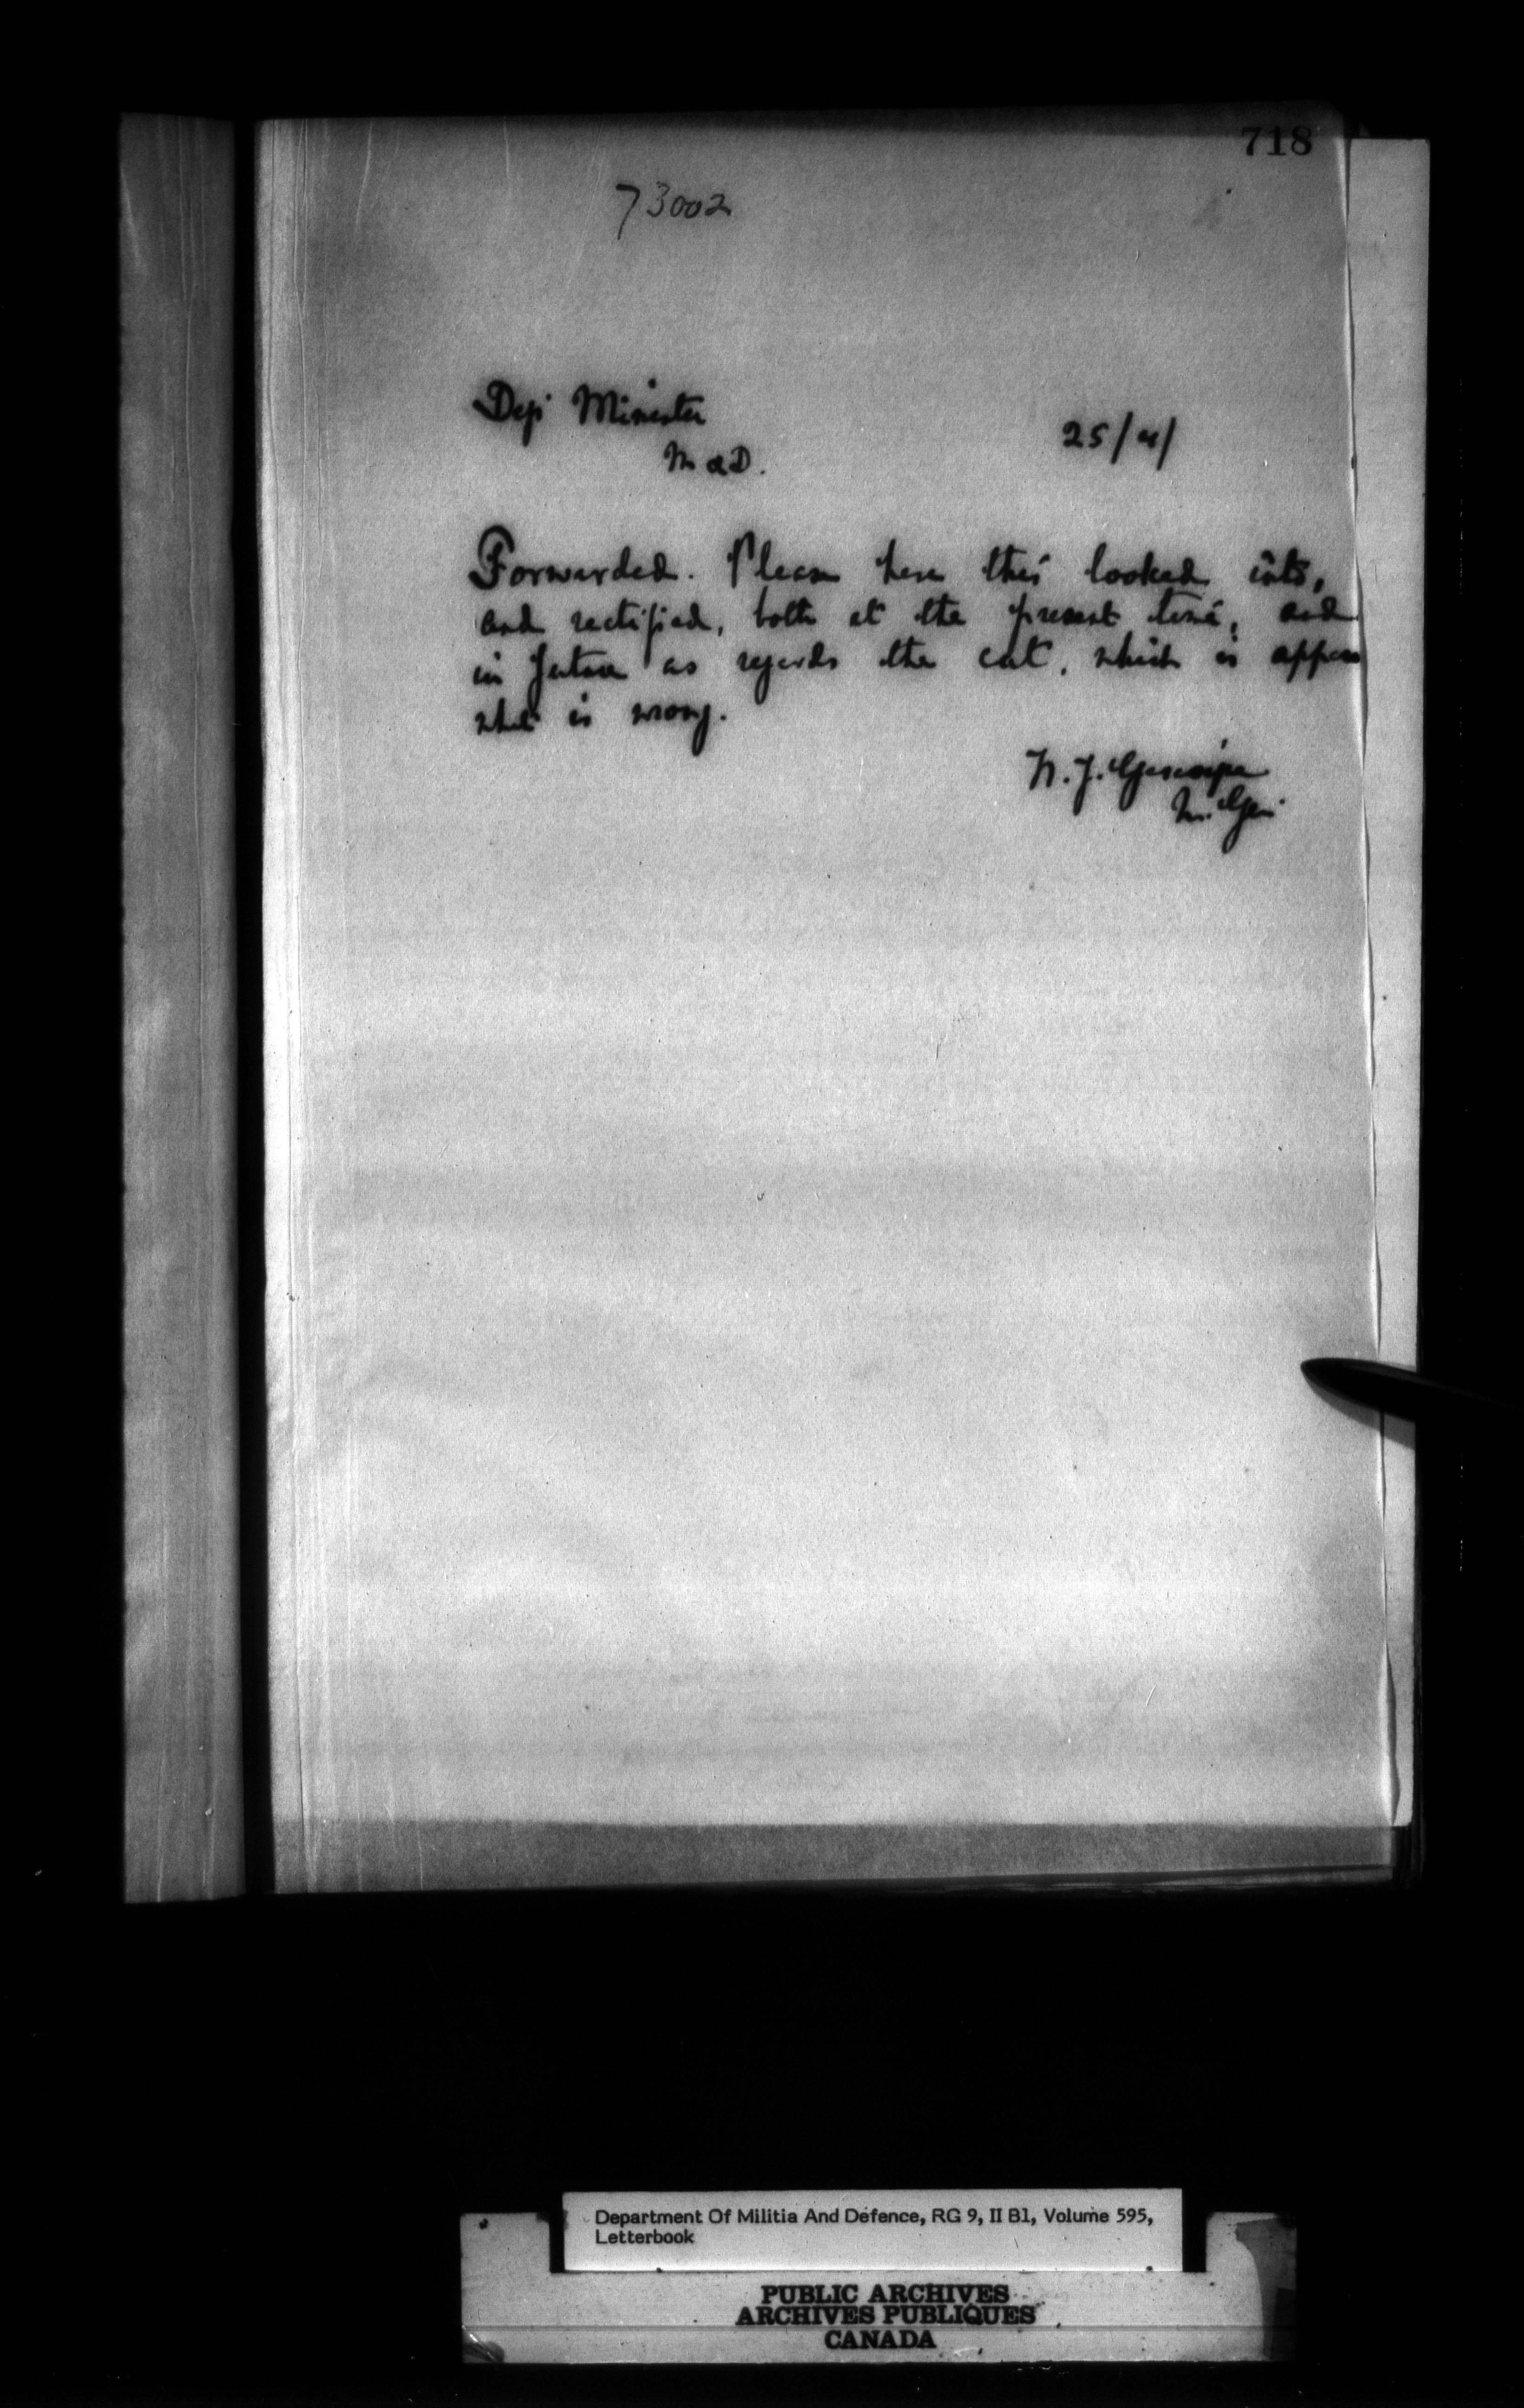 718
73002
Dep Minister
M & D.
25/4/
Forwarded. Please have this looked into,
and rectified, both at the present time, and
in future as regards the cut, which is appar
what is wrong.
W. J. Gascoigne
M. Gen
Department Of Militia And Defence, RG 9, II B1, Volume 595,
Letterbook
PUBLIC ARCHIVES
ARCHIVES PUBLIQUES
CANADA